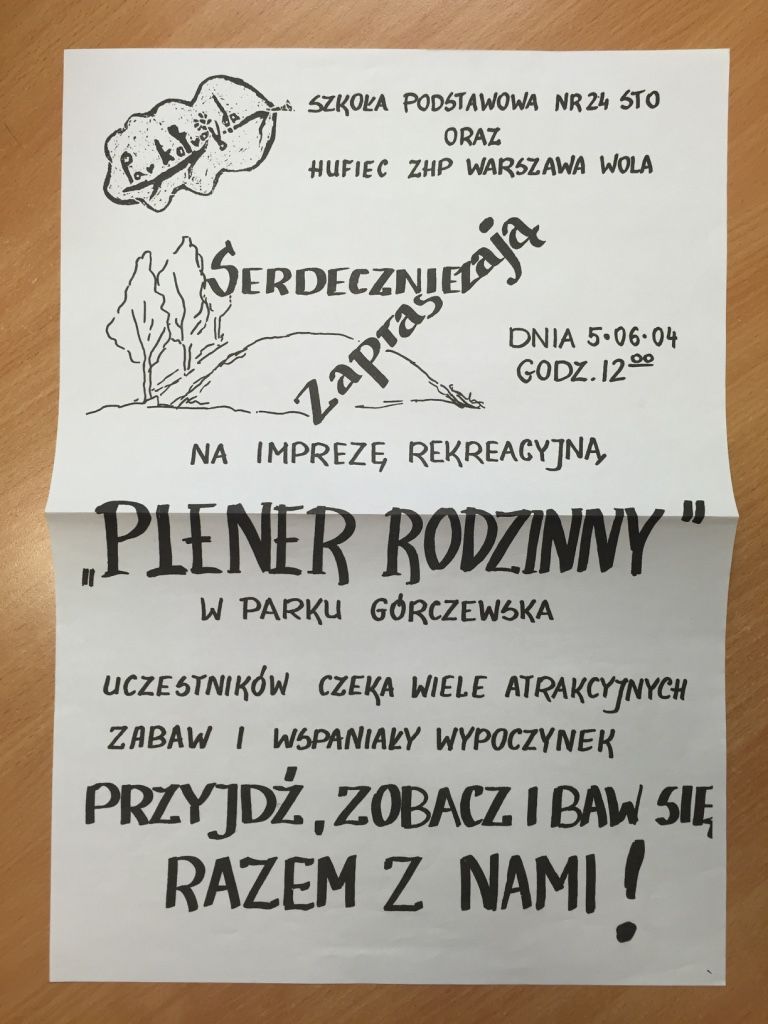 SZKOŁA PODSTAWOWA NR 24 STO
ORAZ
HUFIEC ZHP WARSZAWA WOLA
SERDECZNIE
zapraszają
DNIA 5.06.04
GODZ. 12⁰⁰
NA IMPREZĘ REKREACYJNĄ
„PLENER RODZINNY"
W PARKU GÓRCZEWSKA
UCZESTNIKÓW CZEKA WIELE ATRAKCYJNYCH
ZABAW I WSPANIAŁY WYPOCZYNEK
PRZYJDŹ, ZOBACZ I BAW SIĘ
RAZEM Z NAMI!